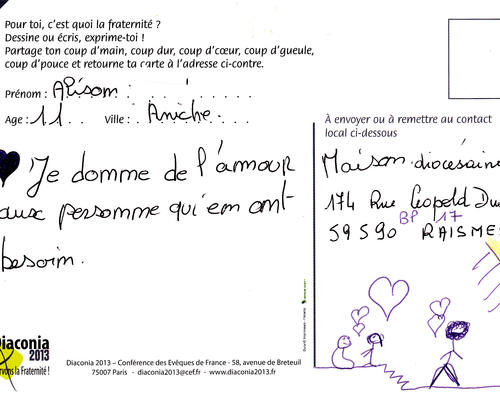 Pour toi, c'est quoi la fraternité ?
Dessine ou écris, exprime-toi !
Partage ton coup d'main, coup dur, coup d'cœur, coup d'gueule,
coup d'pouce et retourne ta carte à l'adresse ci-contre.
Prénom : Alisom
Age : 11 Ville : Aniche
Je domme de l'amour
aux persomme qui em omt
besoim.
À envoyer ou à remettre au contact
local ci-dessous
Maison diocésaine
174 Rue Léopold Du
BP 17
59590 RAISMES
Diaconia
2013
rvons la Fraternité !
Diaconia 2013 – Conférence des Evêques de France - 58, avenue de Breteuil
75007 Paris - diaconia2013@cef.fr - www.diaconia2013.fr